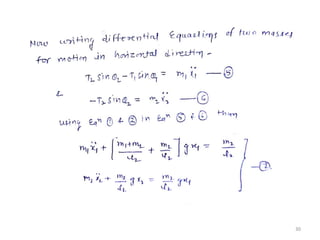 Now writing differential Equations of two masses
for motion in horizontal direction -
T₂ sin θ₂ - T₁ sin θ₁ = m₁ ẍ₁ — ⑤
&
-T₂ sin θ₂ = m₂ ẍ₂ — ⑥
using Eqn ① & ② in Eqn ⑤ & ⑥ then
m₁ẍ₁ + [(m₁+m₂)/l₁ + m₂/l₂] g x₁ = m₂/l₂
m₂ ẍ₂ + m₂/l₂ g x₂ = m₂/l₂ g x₁